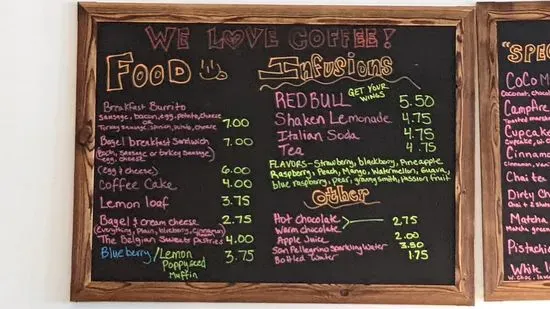 WE LOVE COFFEE!
FOOD
Breakfast Burrito
Sausage, bacon, egg, potato, cheese
OR
Turkey sausage, spinach, potato, cheese 7.00
Bagel breakfast Sandwich 7.00
egg, cheese)
(egg & cheese) 6.00
Coffee Cake 4.00
Lemon loaf 3.75
Bagel & cream cheese 2.75
(Everything, Plain, blueberry, Cinnamon
The Belgian Sweets Pastries 4.00
Blueberry / Lemon 3.75
Poppyseed
Muffin
Infusions
RED BULL GET YOUR WINGS 5.50
Shaken Lemonade 4.75
Italian Soda 4.75
Tea 4.75
FLAVORS - Strawberry, blackberry, Pineapple
Raspberry, Peach, Mango, Watermelon, Guava,
blue raspberry, Pear, granny Smith, Passion fruit
Other
Hot chocolate
Warm chocolate 2.75
Apple Juice 2.00
San Pellegrino Sparkling Water 3.50
Bottled Water 1.75
"SPE
COCO M
Coconut, choc
Campfire
Toasted marsh
Cupcake
Cupcake, w. c
Cinnamon
Cinnamon, van
Chai te
Dirty Ch
Chai & 2 sho
Matcha
Matcha green
Pistachi
White
W. choc, lav